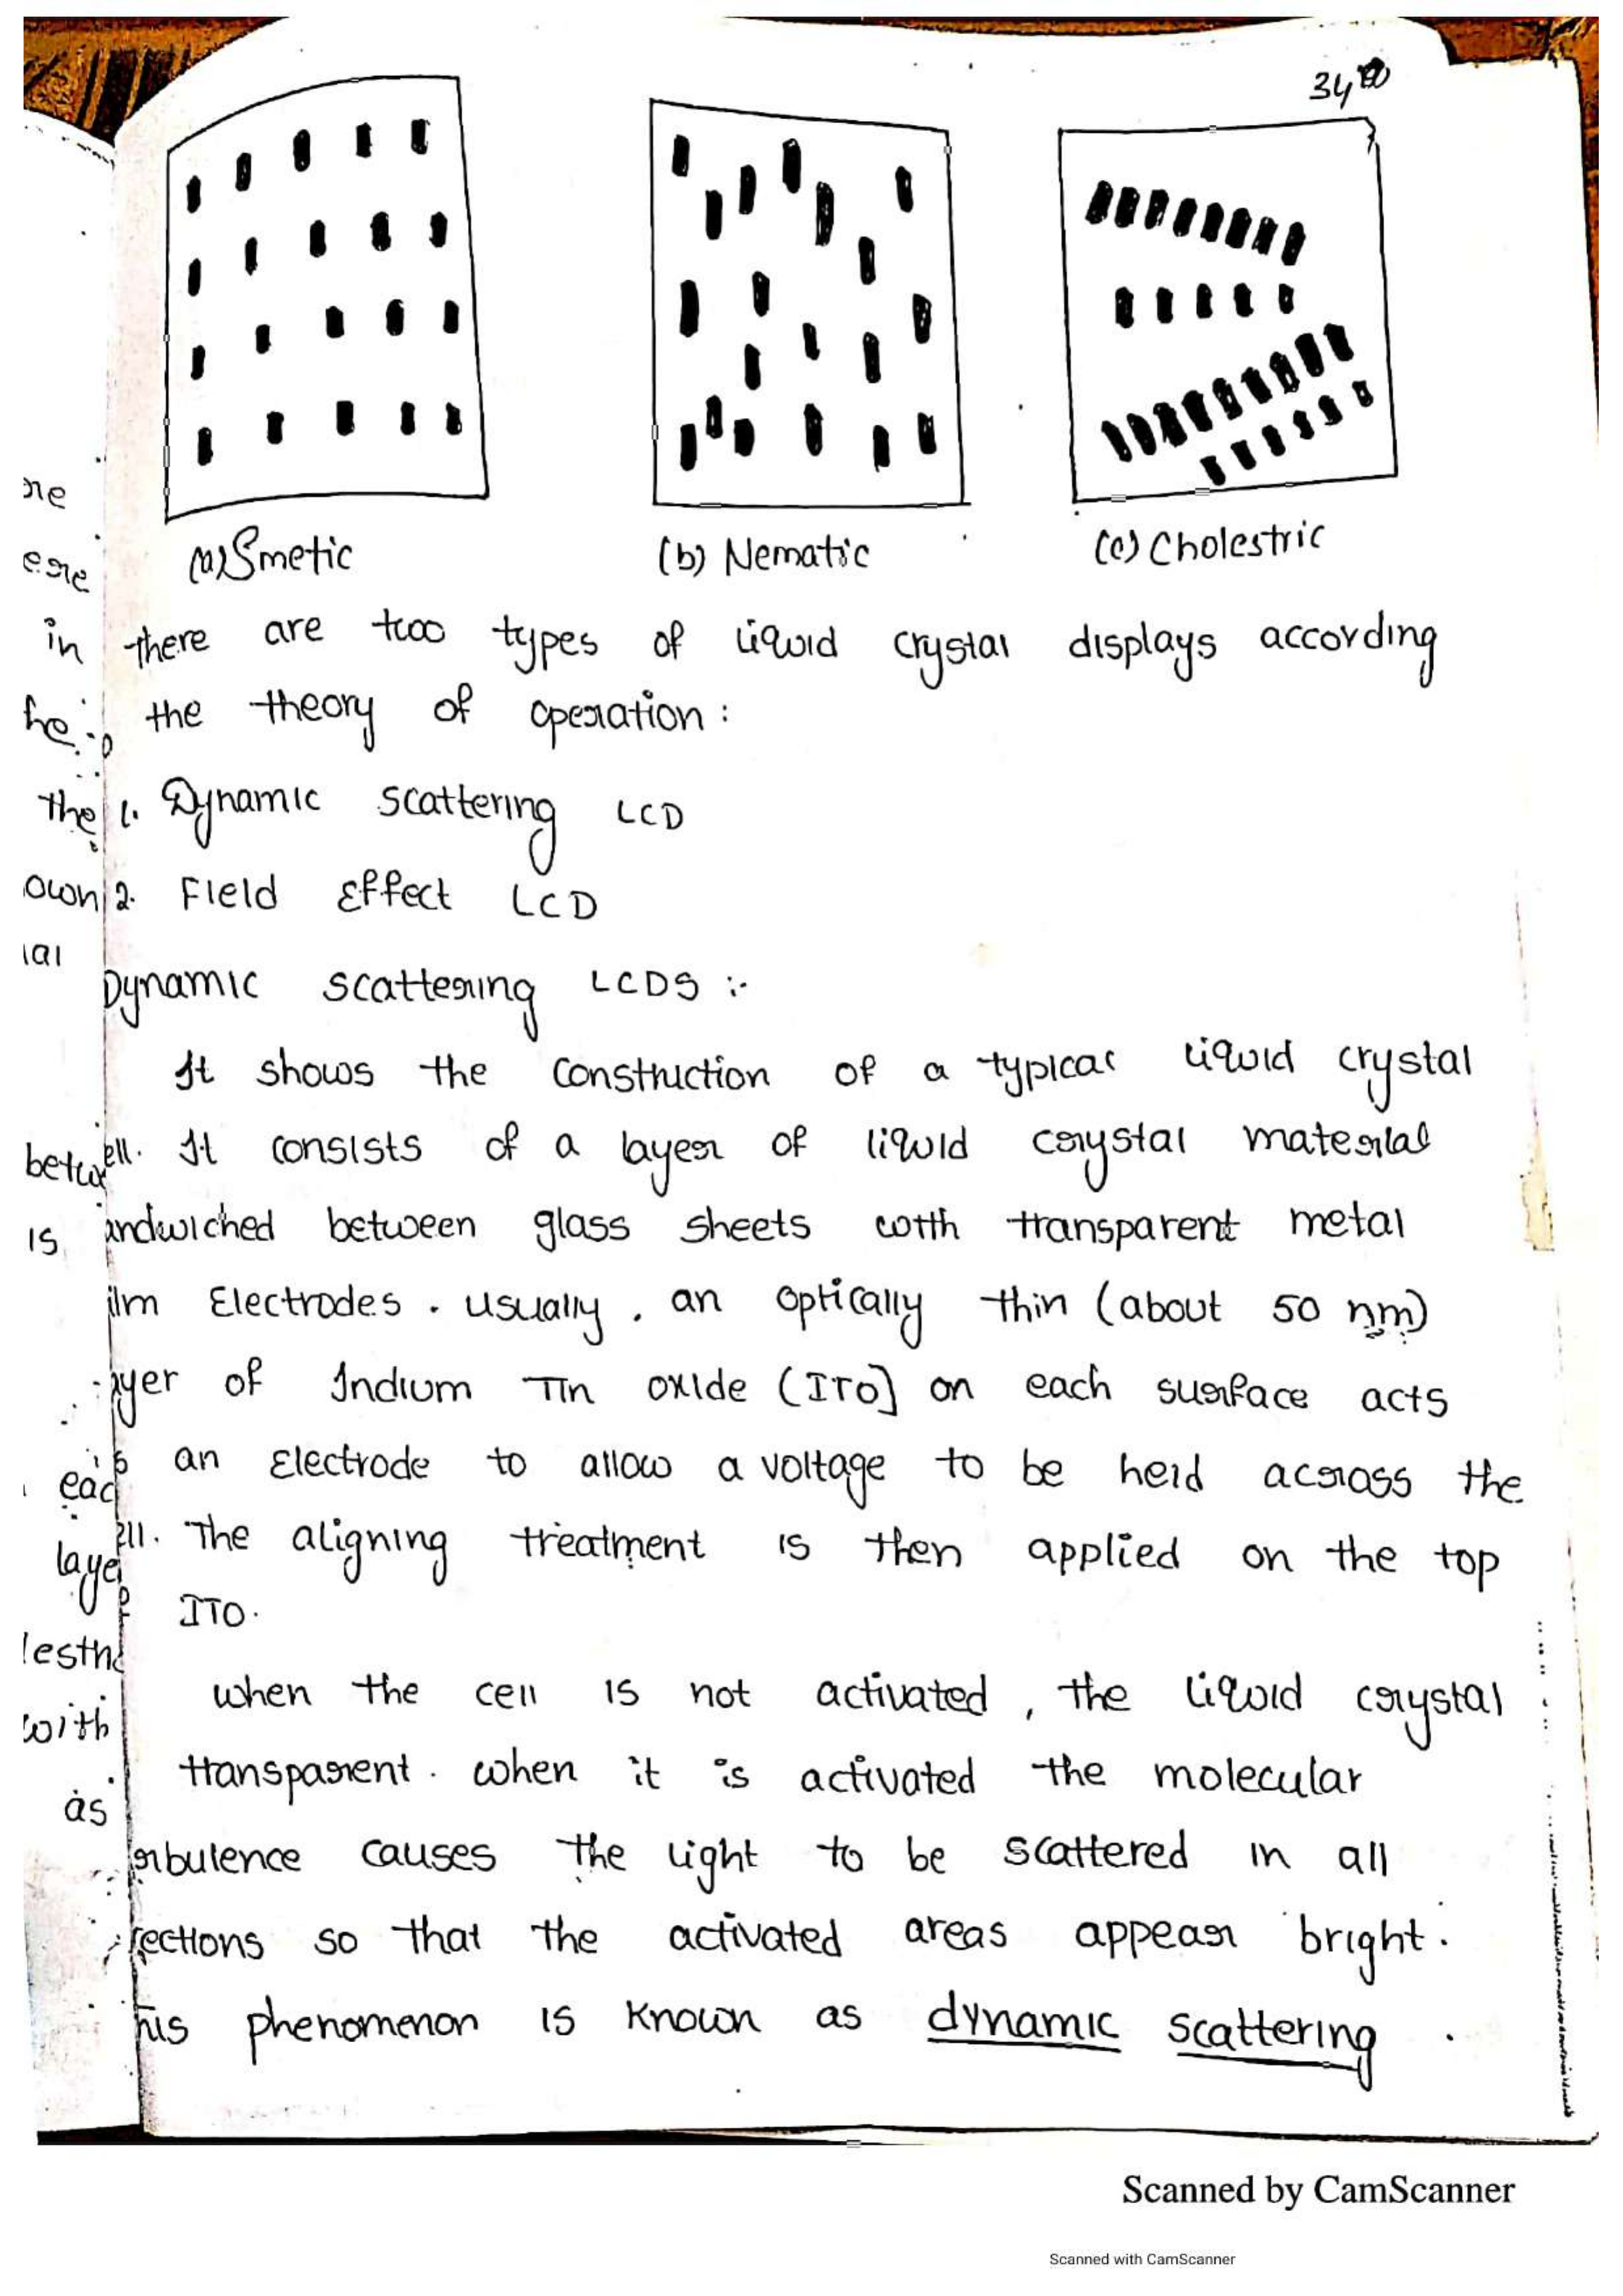 34
(a) Smetic
(b) Nematic
(c) Cholestric
there are two types of liquid crystal displays according
the theory of operation:
1. Dynamic scattering LCD
2. Field Effect LCD
Dynamic scattering LCDS :-
It shows the construction of a typical liquid crystal
ell. It consists of a layer of liquid crystal material
andwiched between glass sheets with transparent metal
ilm Electrodes. usually. an optically thin (about 50 nm)
ayer of Indium Tin oxide (ITO] on each surface acts
an Electrode to allow a voltage to be held across the
ell. The aligning treatment is then applied on the top
ITO.
when the cell is not activated, the liquid crystal
transparent. when it is activated the molecular
rbulence causes the light to be scattered in all
rections so that the activated areas appear bright.
his phenomenon is known as dynamic scattering.
ere
in
he
the
own
ial
betwe
is
eac
laye
lesth
with
as
Scanned by CamScanner
Scanned with CamScanner